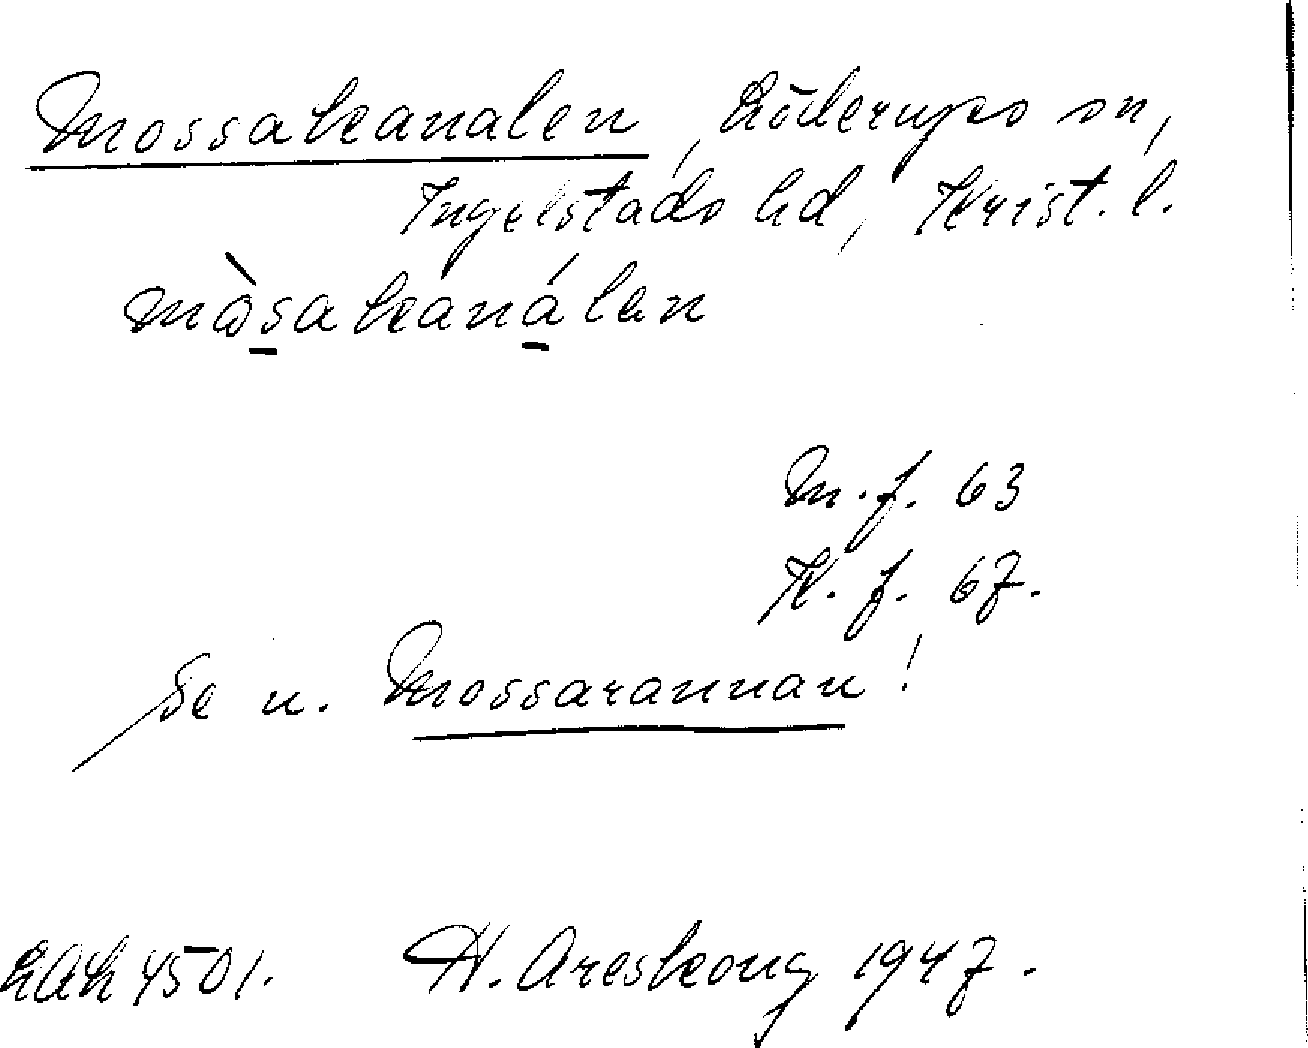 Mossakanalen, Löderups sn,
Ingelstads hd, Krist. l.
mòsakanálen
M. f. 63
K. f. 67.
Se u. Mossarannan!
LAL 4501. H. Areskoug 1947.